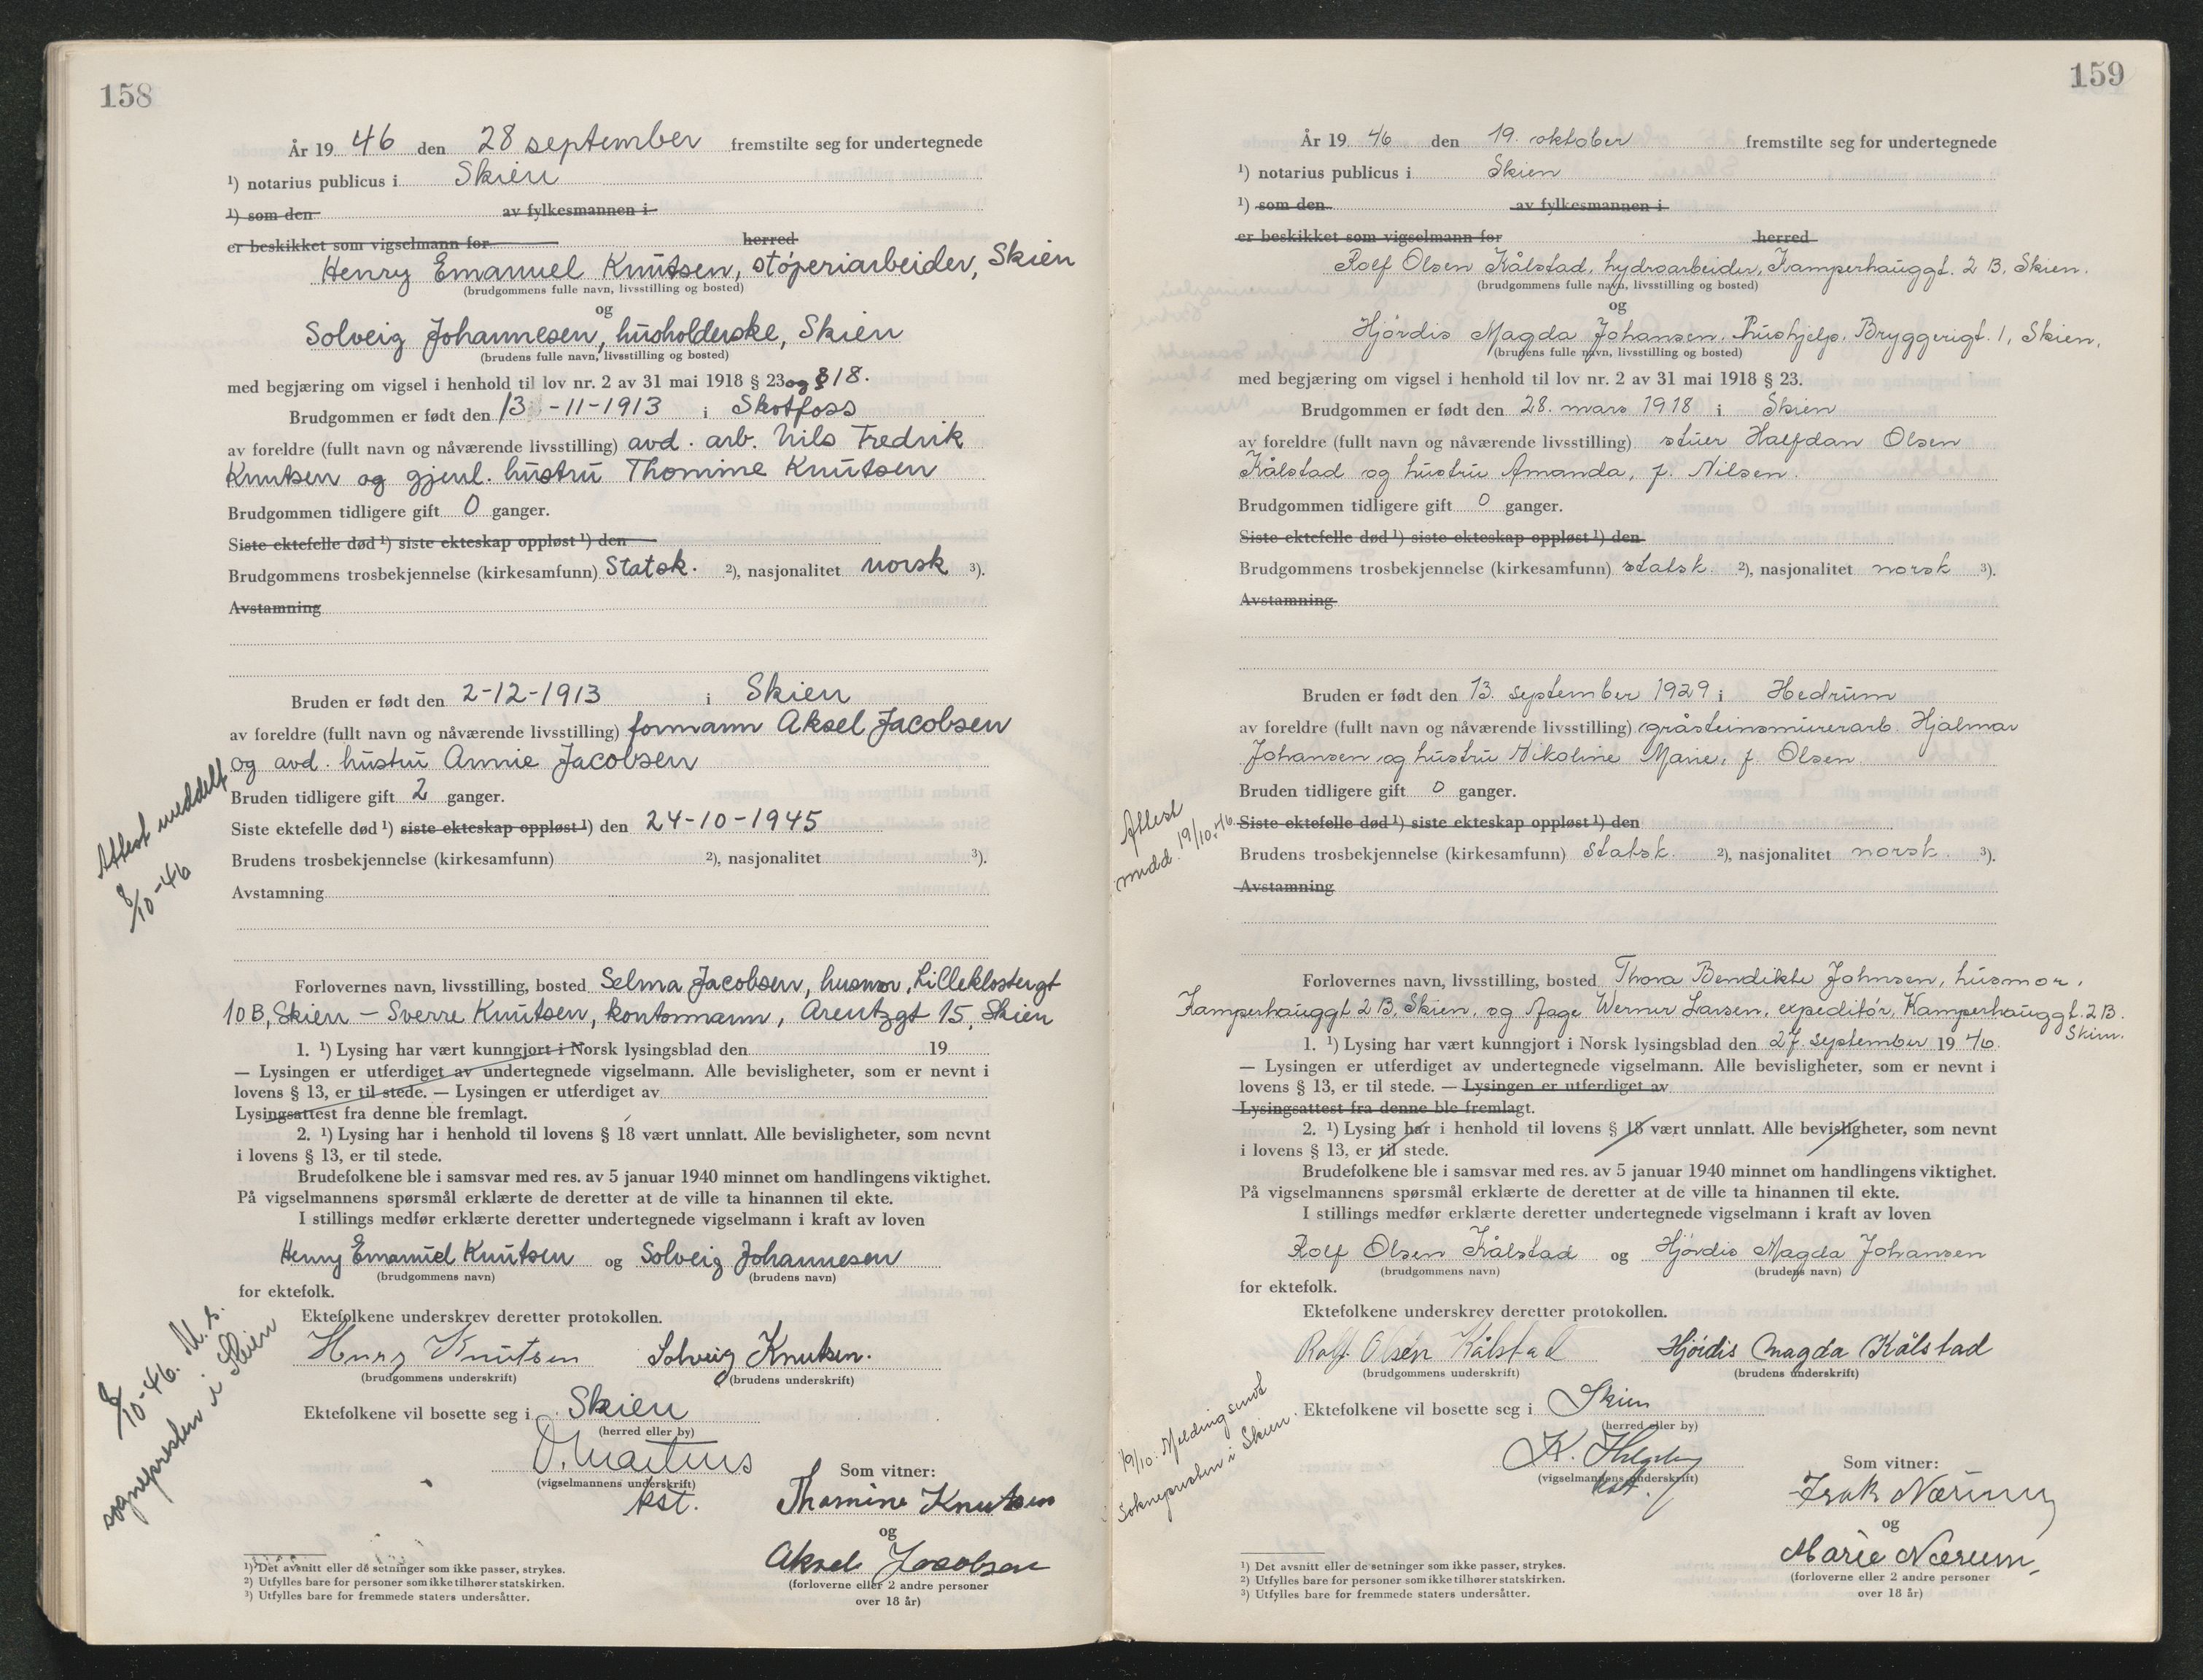 158
År 19 46 den 28 september fremstilte seg for undertegnede
¹) notarius publicus i Skien
¹) som den av fylkesmannen i
er beskikket som vigselmann for herred
Henry Emanuel Knutsen, støperiarbeider, Skien
(brudgommens fulle navn, livsstilling og bosted)
og
Solveig Johannesen, husholderske, Skien
(brudens fulle navn, livsstilling og bosted)
med begjæring om vigsel i henhold til lov nr. 2 av 31 mai 1918 § 23 og § 18.
Brudgommen er født den 13-11-1913 i Skotfoss
av foreldre (fullt navn og nåværende livsstilling) avd. arb. Nils Fredrik
Knutsen og gjenl. hustru Thomine Knutsen
Brudgommen tidligere gift 0 ganger.
Siste ektefelle død ¹) siste ekteskap oppløst ¹) den
Brudgommens trosbekjennelse (kirkesamfunn) Statsk. ²), nasjonalitet norsk ³).
Avstamning
Bruden er født den 2-12-1913 i Skien
av foreldre (fullt navn og nåværende livsstilling) formann Aksel Jacobsen
og avd. hustru Annie Jacobsen
Bruden tidligere gift 2 ganger.
Siste ektefelle død ¹) siste ekteskap oppløst ¹) den 24-10-1945
Brudens trosbekjennelse (kirkesamfunn) ²), nasjonalitet ³).
Avstamning
Attest meddelt
8/10-46
Forlovernes navn, livsstilling, bosted Selma Jacobsen, husmor, Lilleklostergt
10 B, Skien – Sverre Knutsen, kontormann, Arentzgt 15, Skien
1. ¹) Lysing har vært kunngjort i Norsk lysingsblad den 19
— Lysingen er utferdiget av undertegnede vigselmann. Alle bevisligheter, som er nevnt i
lovens § 13, er til stede. — Lysingen er utferdiget av
Lysingsattest fra denne ble fremlagt.
2. ¹) Lysing har i henhold til lovens § 18 vært unnlatt. Alle bevisligheter, som nevnt
i lovens § 13, er til stede.
Brudefolkene ble i samsvar med res. av 5 januar 1940 minnet om handlingens viktighet.
På vigselmannens spørsmål erklærte de deretter at de ville ta hinannen til ekte.
I stillings medfør erklærte deretter undertegnede vigselmann i kraft av loven
Henry Emanuel Knutsen og Solveig Johannesen
(brudgommens navn) (brudens navn)
for ektefolk.
Ektefolkene underskrev deretter protokollen.
Henry Knutsen Solveig Knutsen.
(brudgommens underskrift) (brudens underskrift)
Ektefolkene vil bosette seg i Skien
(herred eller by)
8/10-46. M. s.
sognepresten i Skien
(vigselmannens underskrift)
kst.
Som vitner:
Thomine Knutsen
og
Aksel Jacobsen
(forloverne eller 2 andre personer
over 18 år)
¹) Det avsnitt eller de setninger som ikke passer, strykes.
²) Utfylles bare for personer som ikke tilhører statskirken.
³) Utfylles bare for fremmede staters undersåtter.
159
År 19 46 den 19. oktober fremstilte seg for undertegnede
¹) notarius publicus i Skien
¹) som den av fylkesmannen i
er beskikket som vigselmann for herred
Rolf Olsen Kålstad, hydroarbeider, Kamperhauggt. 2 B, Skien.
(brudgommens fulle navn, livsstilling og bosted)
og
Hjørdis Magda Johansen, hushjelp, Bryggerigt. 1, Skien,
(brudens fulle navn, livsstilling og bosted)
med begjæring om vigsel i henhold til lov nr. 2 av 31 mai 1918 § 23.
Brudgommen er født den 28. mars 1918 i Skien
av foreldre (fullt navn og nåværende livsstilling) stuer Halfdan Olsen
Kålstad og hustru Amanda, f. Nilsen.
Brudgommen tidligere gift 0 ganger.
Siste ektefelle død ¹) siste ekteskap oppløst ¹) den
Brudgommens trosbekjennelse (kirkesamfunn) statsk. ²), nasjonalitet norsk ³).
Avstamning
Bruden er født den 13. september 1929 i Hedrum
av foreldre (fullt navn og nåværende livsstilling) gråsteinsmurerarb. Hjalmar
Johansen og hustru Nikoline Marie, f. Olsen
Bruden tidligere gift 0 ganger.
Siste ektefelle død ¹) siste ekteskap oppløst ¹) den
Brudens trosbekjennelse (kirkesamfunn) statsk. ²), nasjonalitet norsk. ³).
Avstamning
Attest
medd. 19/10-46.
Forlovernes navn, livsstilling, bosted Thora Bendikte Johnsen, husmor,
Kamperhauggt 2 B, Skien, og Aage Werner Larsen, expeditør, Kamperhauggt. 2 B.
Skien.
1. ¹) Lysing har vært kunngjort i Norsk lysingsblad den 27. september 19 46.
— Lysingen er utferdiget av undertegnede vigselmann. Alle bevisligheter, som er nevnt i
lovens § 13, er til stede. — Lysingen er utferdiget av
Lysingsattest fra denne ble fremlagt.
2. ¹) Lysing har i henhold til lovens § 18 vært unnlatt. Alle bevisligheter, som nevnt
i lovens § 13, er til stede.
Brudefolkene ble i samsvar med res. av 5 januar 1940 minnet om handlingens viktighet.
På vigselmannens spørsmål erklærte de deretter at de ville ta hinannen til ekte.
I stillings medfør erklærte deretter undertegnede vigselmann i kraft av loven
Rolf Olsen Kålstad og Hjørdis Magda Johansen
(brudgommens navn) (brudens navn)
for ektefolk.
Ektefolkene underskrev deretter protokollen.
Rolf Olsen Kålstad Hjördis Magda Kålstad
(brudgommens underskrift) (brudens underskrift)
Ektefolkene vil bosette seg i Skien
(herred eller by)
19/10: Melding sendt
Soknepresten i Skien.
(vigselmannens underskrift)
kst.
Som vitner:
Isak Nærum
og
Marie Nærum,
(forloverne eller 2 andre personer
over 18 år)
¹) Det avsnitt eller de setninger som ikke passer, strykes.
²) Utfylles bare for personer som ikke tilhører statskirken.
³) Utfylles bare for fremmede staters undersåtter.